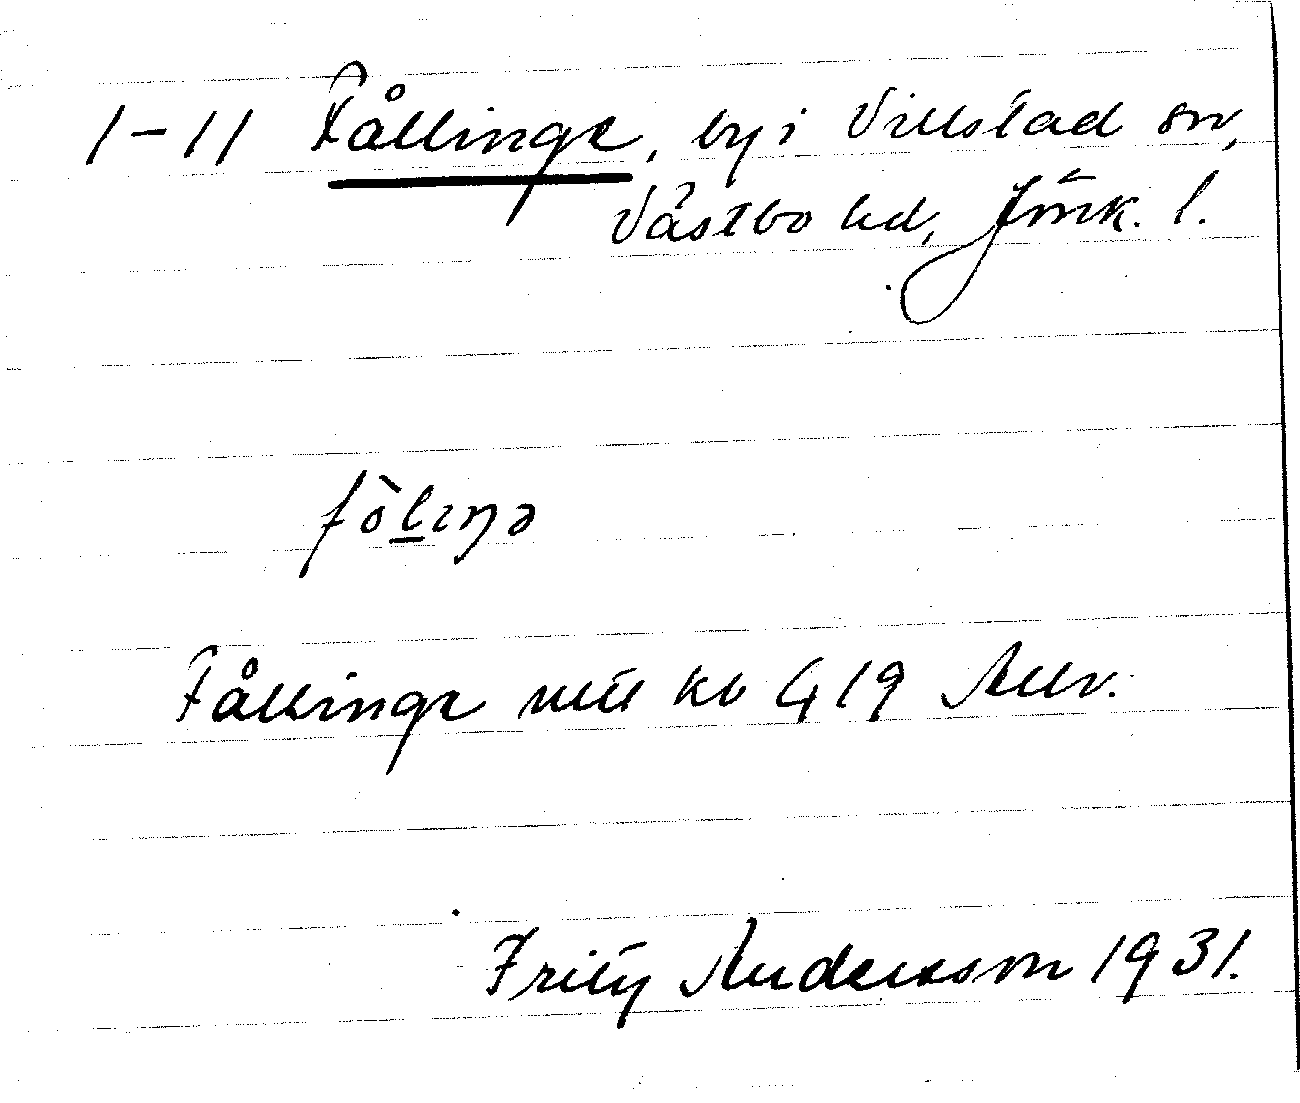 1-11 Fållinge, by i Villstad sn,
Västbo hd, Jönk. l.
fò̱lıŋə
Fållinge utt kb 419 Allv.
Fritz Andersson 1931.